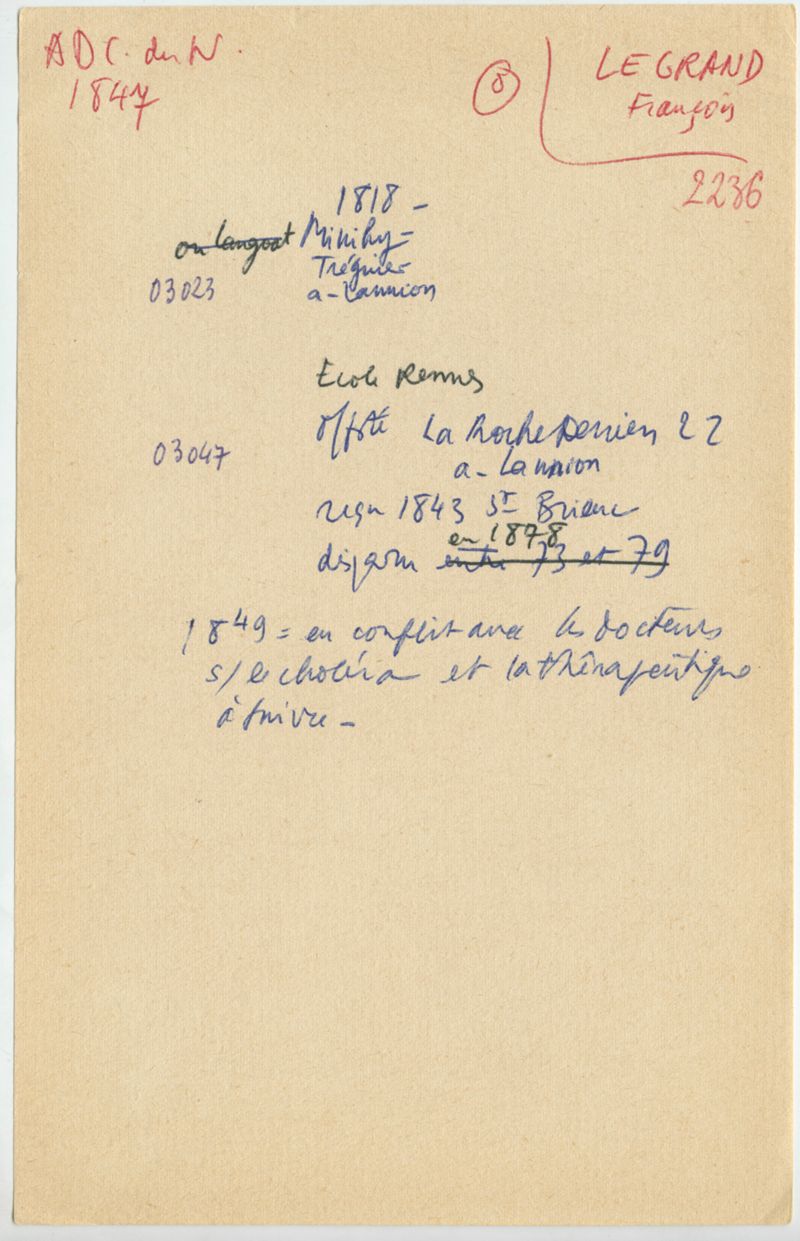 ADC. du N.
1847
8
LE GRAND
François
2236
1818 -
ou Langoat Minihy-
Tréguier
03023 a-Lannion
Ecole Rennes
off. santé La Roche Derrien 22
03047 a-Lannion
reçu 1843 St Brieuc
en 1878
disparu entre 73 et 79
1849 = en conflit avec les docteurs
s/ le choléra et la thérapeutique
à suivre -